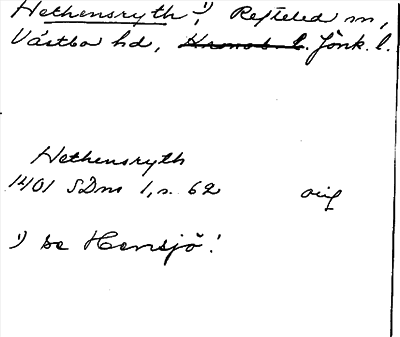 Hethensryth ¹), Refteled sn,
Västbo hd, Kronob. l. Jönk. l.
Hethensryth
1401 SDns 1, s. 62 orig
¹) se Hensjö!